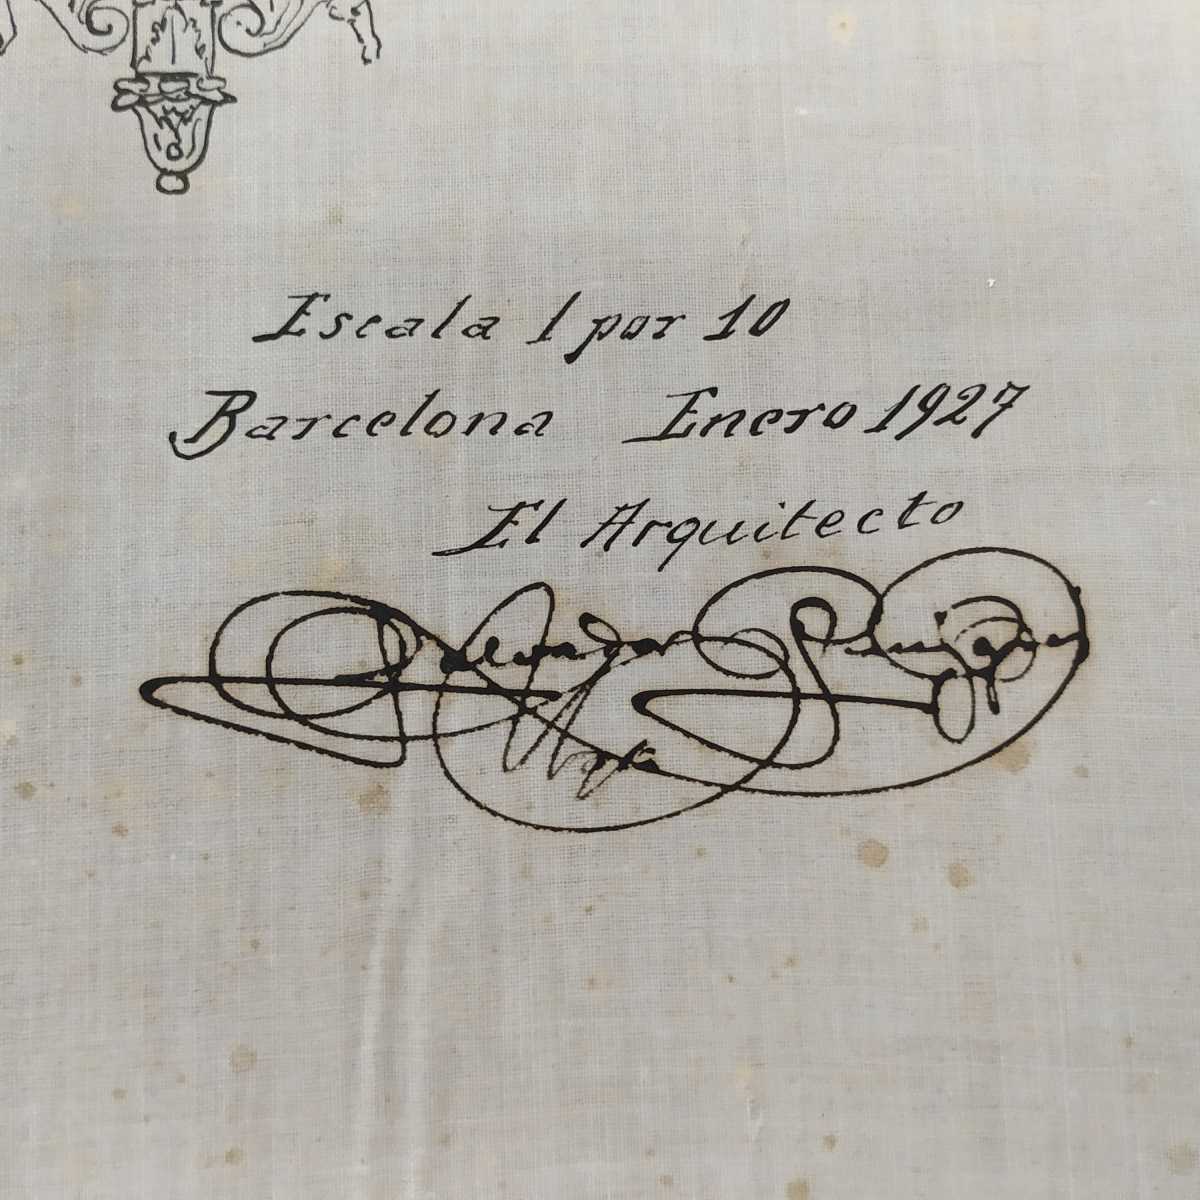 Escala 1 por 10
Barcelona Enero 1927
El Arquitecto
Salvador